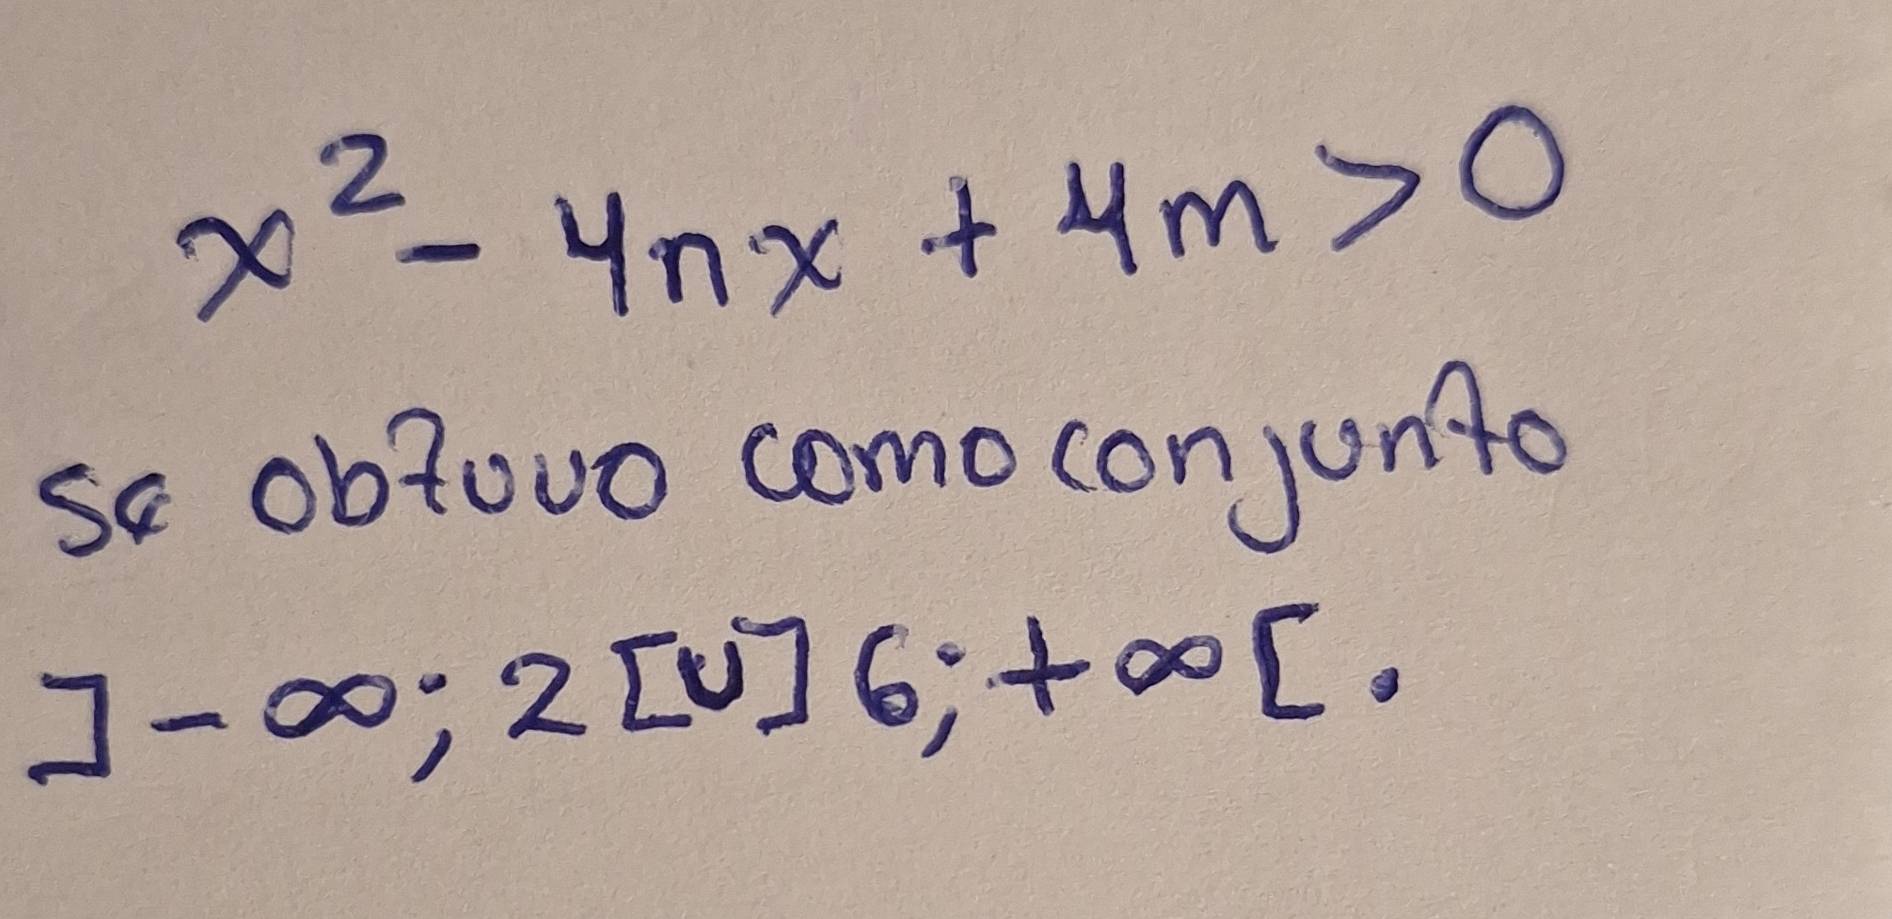 x² - 4nx + 4m > 0
se obtuvo como conjunto
]-∞; 2[U]6; +∞[.